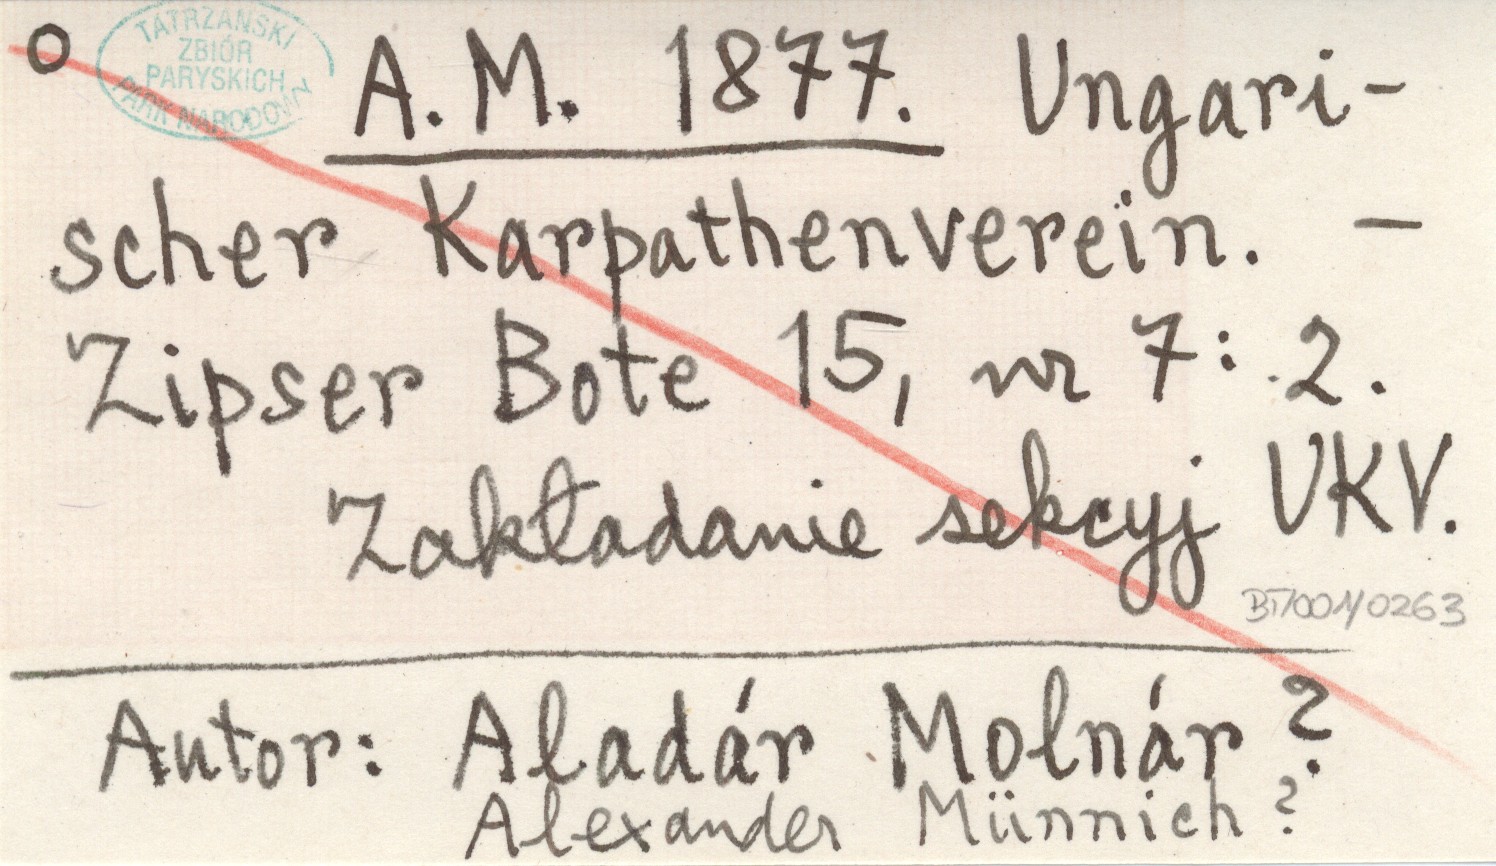 O
TATRZAŃSKI
ZBIÓR
PARYSKICH
PARK NARODOWY
A. M. 1877. Ungari-
scher Karpathenverein. —
Zipser Bote 15, nr 7: 2.
Zakładanie sekcyj UKV.
BT/001/0263
Autor: Aladár Molnár?
Alexander Münnich?